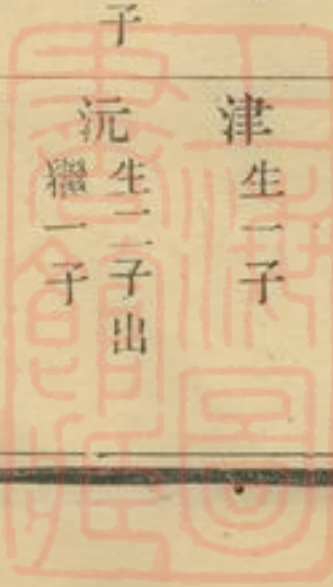 津 生一子
沅 生二子出
繼一子
子